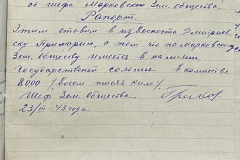 от шефа Марковской Зем. общества
Рапорт.
Этим ставим в известность
ску Примарию, о том что по Марковско
Зем. обществу имеется в наличии
Государственной соломы в количестве
8000 / восем тысяч кило/
Шеф Зем. общества
23/III-43 года